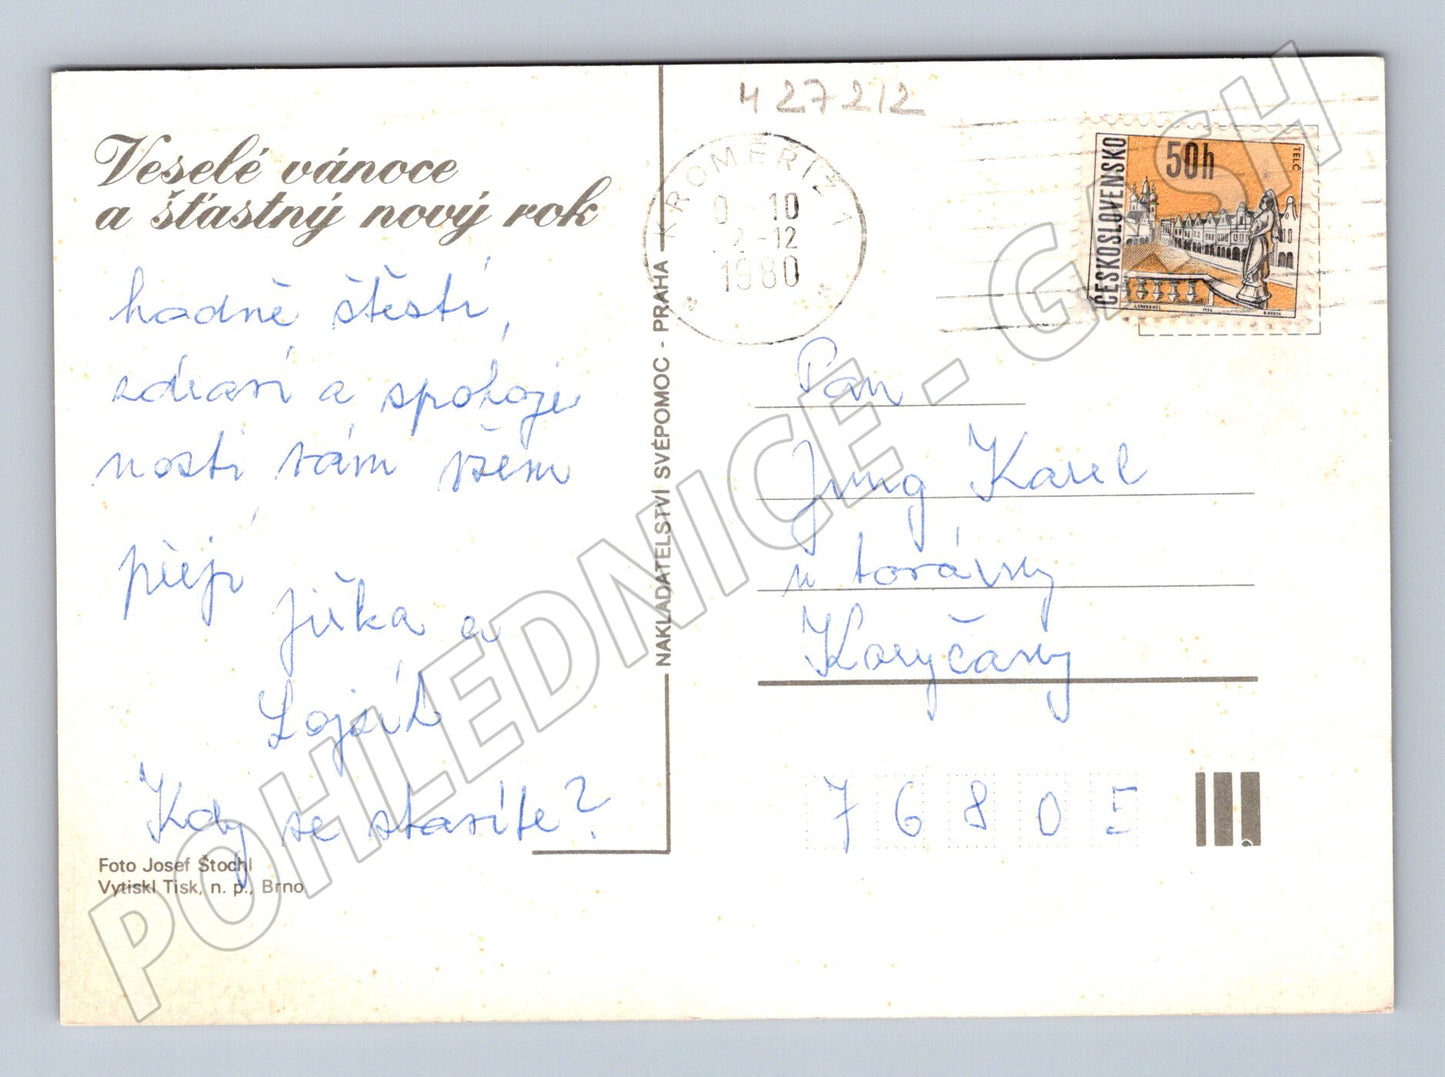 Veselé vánoce
a šťastný nový rok
hodně štěstí,
zdraví a spokoje
nosti vám všem
přejí
Jiřka a
Loját
Kdy se stavíte?
Foto Josef Štochl
Vytiskl Tisk, n. p., Brno
NAKLADATELSTVÍ SVÉPOMOC - PRAHA
427212
KROMĚŘÍŽ 1
-10
2.-12
1980
ČESKOSLOVENSKO
50h
TELČ
Pan
Jung Karel
u továrny
Koryčany
76805
POHLEDNICE - GASH